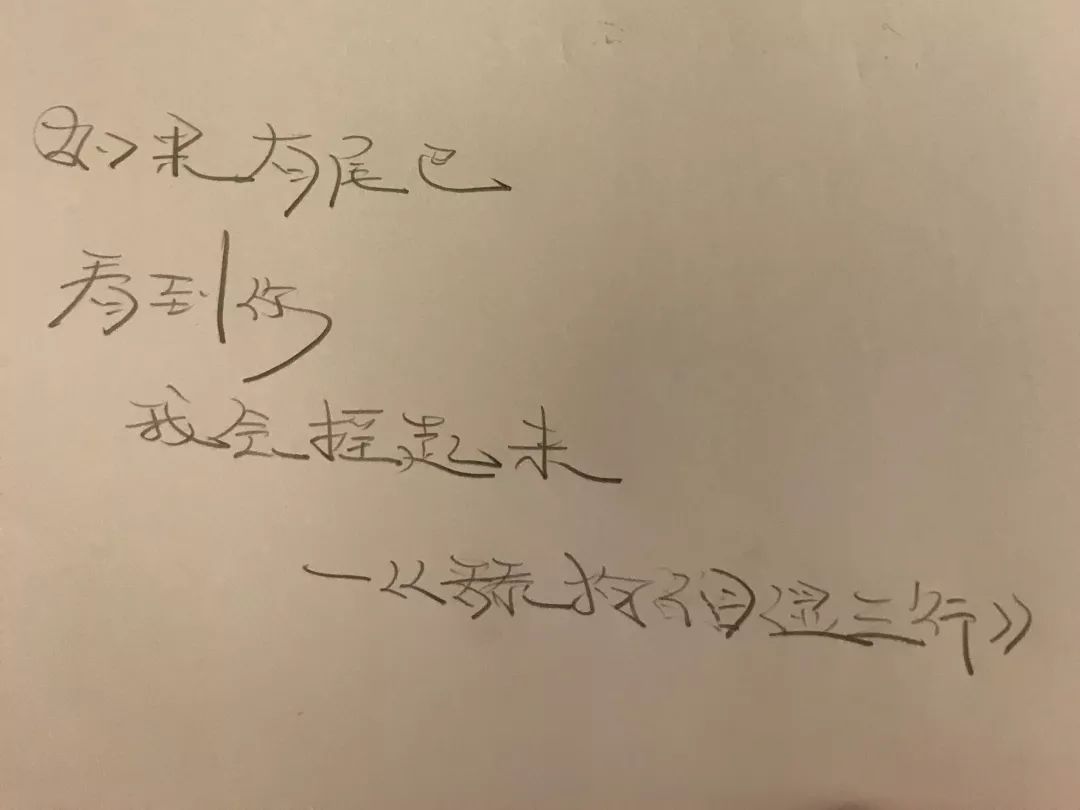 如果有尾巴
看到你
我会摇起来
—《舔 三行》